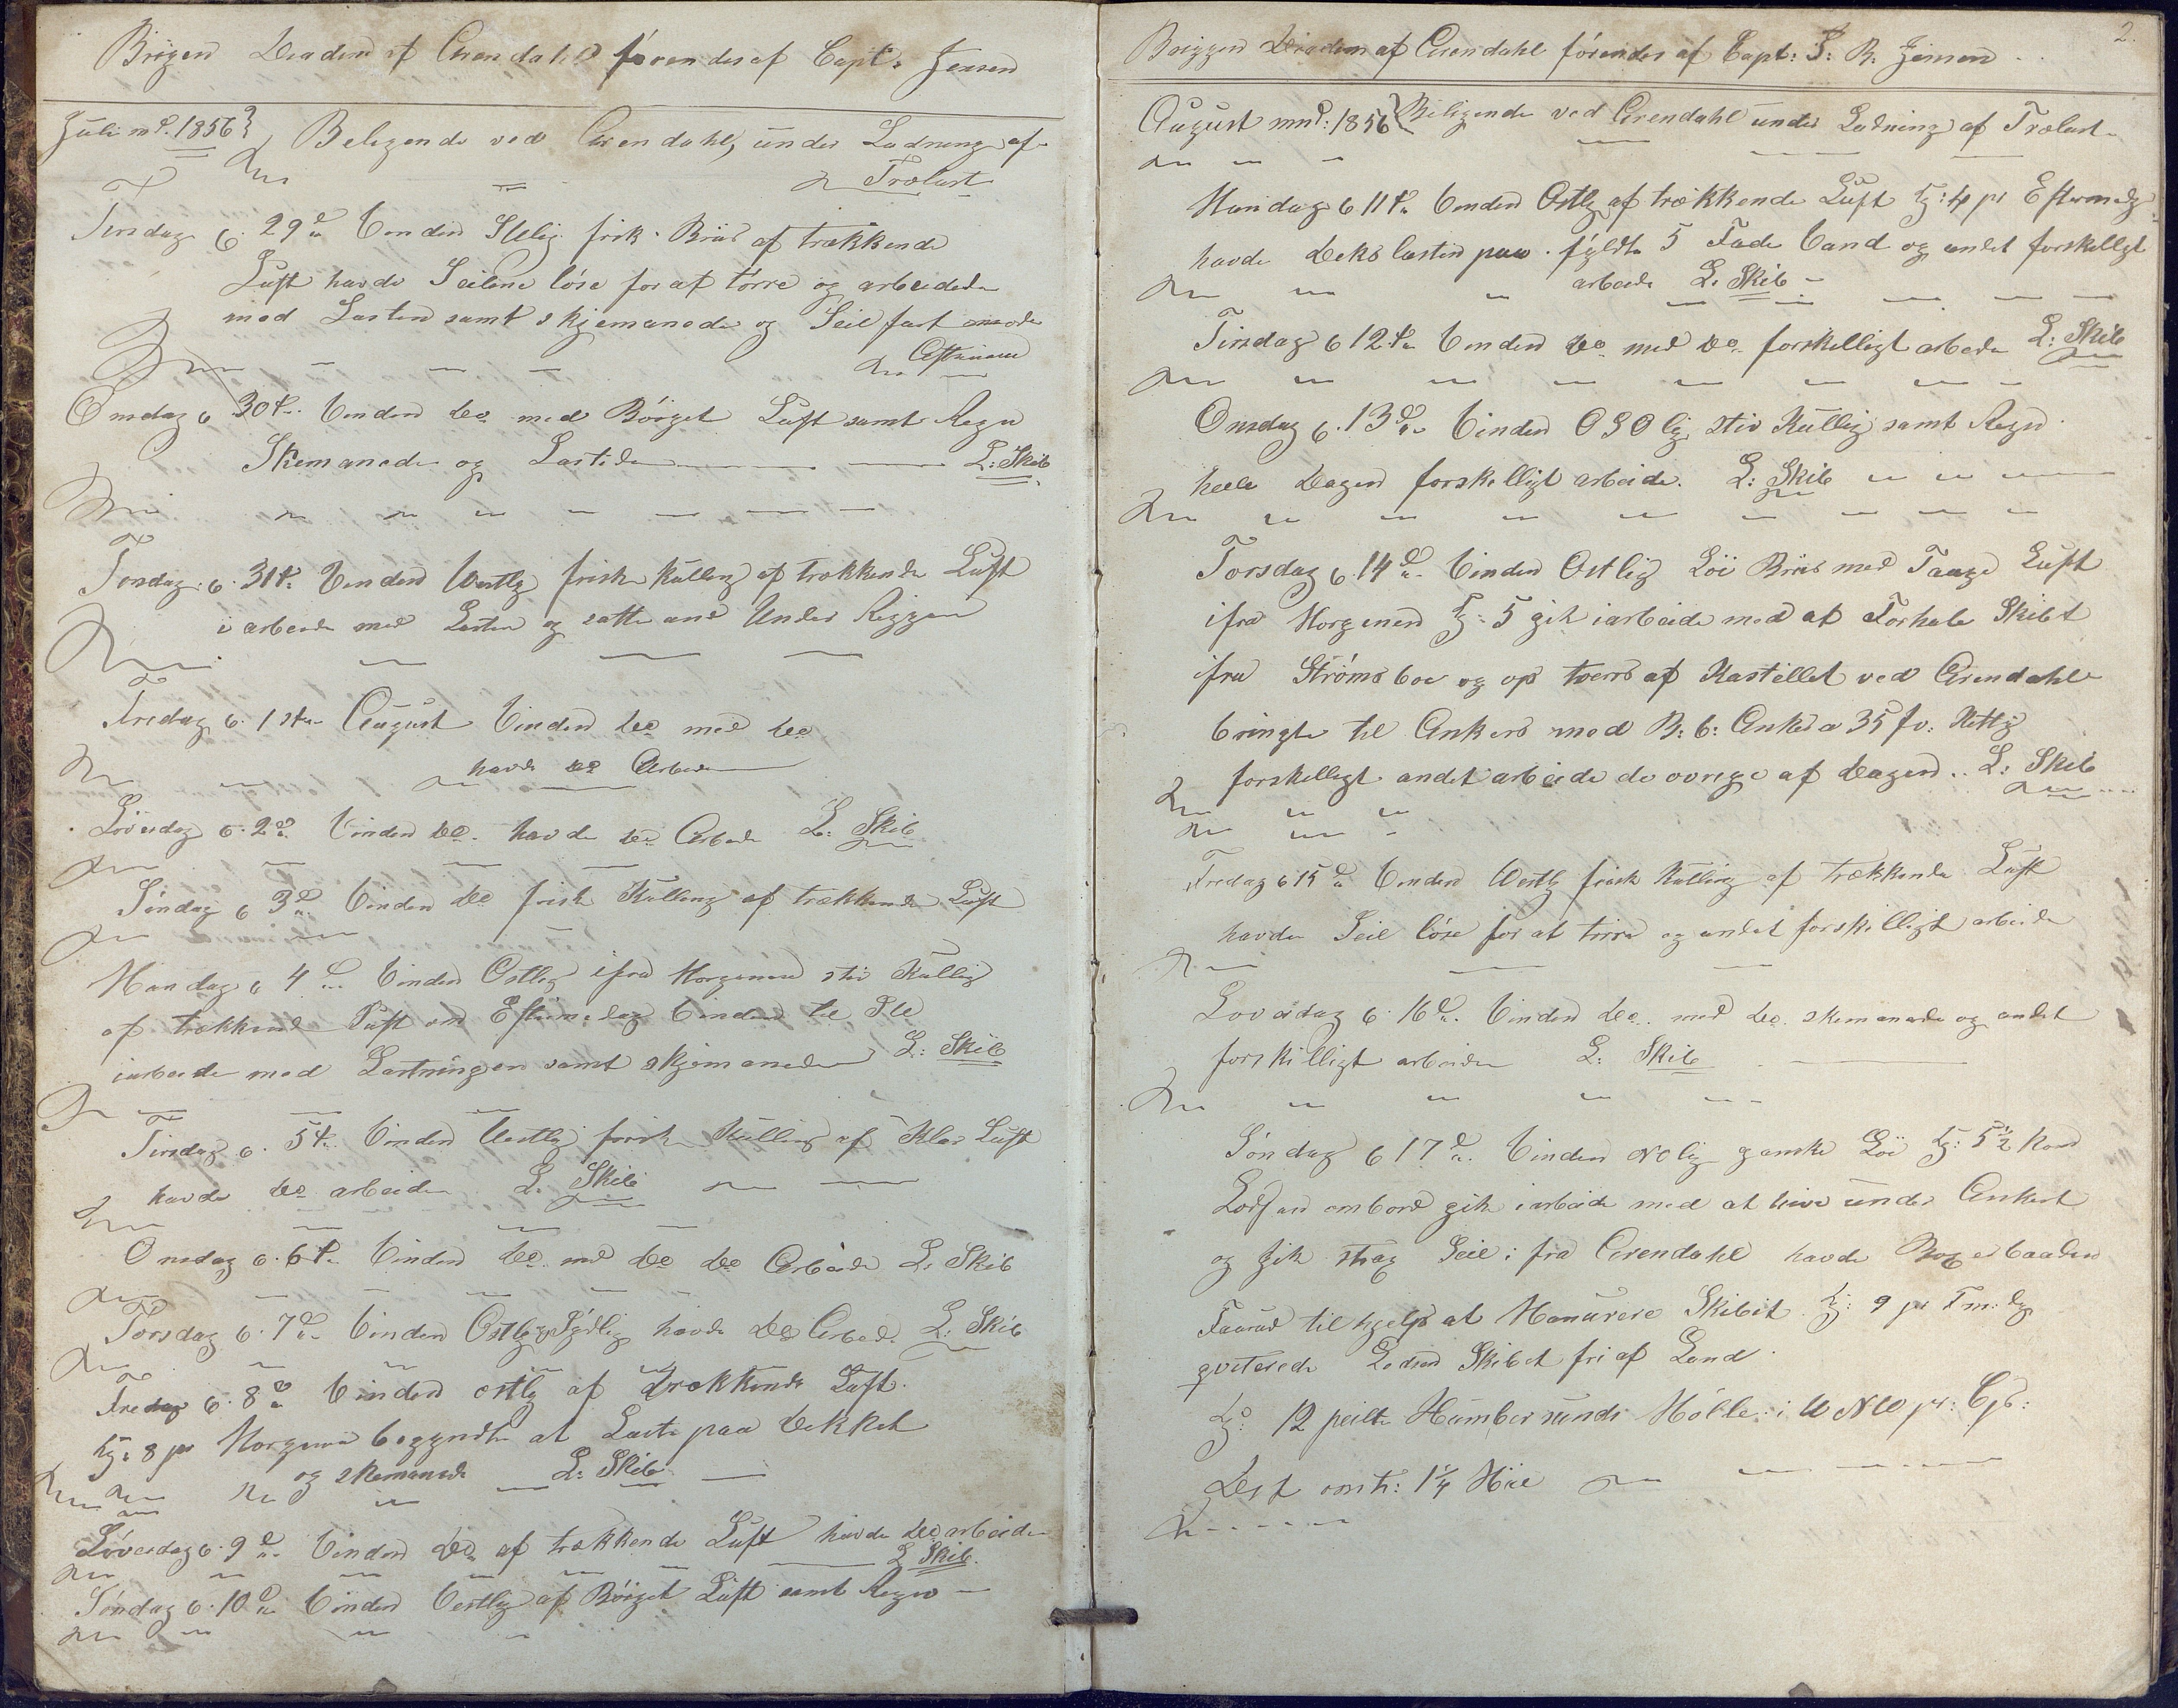 Brigen Diadem af Arendahl förendes af Capt. Jensen
Juli md. 1856 Beligende ved Arendahl, under Ladning af
Trælast
Tirsdag d. 29de Vinden SWlig frisk Bris af trækkende
Luft havde Seilene löse for at törre og arbeidede
med Lasten samt skjemanede og Seil fast
Onsdag d 30te Vinden do med Böiget Luft samt Regn
Skemanede og Lastede L: Skib
Torsdag d. 31te Vinden Westlg frisk Kulling af trækkende Luft
i arbeide med Lasten og satte and Under Riggen
Fredag d. 1ste August Vinden do med do
havde do Arbeide
Löverdag d. 2de Vinden do havde do Arbeide L: Skib
Söndag d 3de Vinden do frisk Kulling af trækkende Luft
Mandag d 4de Vinden Ostlig ifra Morgenen stiv Kulling
af trækkende Luft om Eftermidag Vinden til SW
iarbeide med Lastningen samt skjemanede L: Skib
Tirsdag d. 5te Vinden Vestlig frisk Kulling af Klar Luft
havde do arbeide L. Skib
Onsdag d. 6te Vinden do med do do Arbeide L: Skib
Torsdag d. 7de Vinden Ostlg Sydlig havde do Arbed. L: Skib
Fredag d. 8de Vinden ostlg af Trækkende Luft.
Kg: 8 pr Morgenen begyndte at Laste paa Dekket
og skemanede L: Skib
Löverdag d. 9de Vinden do af trækkende Luft havde do arbeide
L Skib.
Söndag d. 10de Vinden Vestlig af Böiget Luft samt Regn
2.
Briggen Diadem af Arendahl förendes af Capt: S: B. Jensen
August mnd: 1856 Beligende ved Arendahl under Ladning af Trælast
Mandag d 11te Vinden Ostlg af trækkende Luft Kg: 4 pr Eftermdg
havde Dekslasten paa. fyldte 5 Fade Vand og andet forskelligt
arbeide L: Skib
Tirsdag d 12te Vinden do med do forskelligt arbeide L: Skib
Onsdag d. 13de Vinden OSOlig stiv Kulling samt Regn
heele Dagen forskelligt arbeide. L: Skib
Torsdag d. 14de Vinden Ostlig Löi Bris med Taage Luft
ifra Morgenen Kg: 5 gik iarbeide med at Forhale Skibet
ifra Strömsboe og op tvers af Kastellet ved Arendahl
bringte til Ankers med B: b: Anker a 35 fv: Ketting
forskelligt andet arbeide de ovrige af Dagen.. L: Skib
Fredag d 15de Vinden Westlg frisk Kulling af trækkende Luft
havde Seil löse for at törre og andet forskelligt arbeide
Loverdag d. 16de Vinden do med do skemanede og andet
forskelligt arbeide L: Skib
Söndag d 17de Vinden NOlig ganske Löi Kg: 5½ kom
Lodsen ombord gik iarbeide med at hive under Ankert
og gik strax Seil i fra Arendahl havde Bogserbaaden
til hjelp at Manurere Skibet Kg: 9 pr Fm:dg
qviterede Lodsen Skibet fri af Land
Kg: 12 peilte Humbersunds Mölle i WNW pr: Cps:
Dest omtr: 1¼ Mile